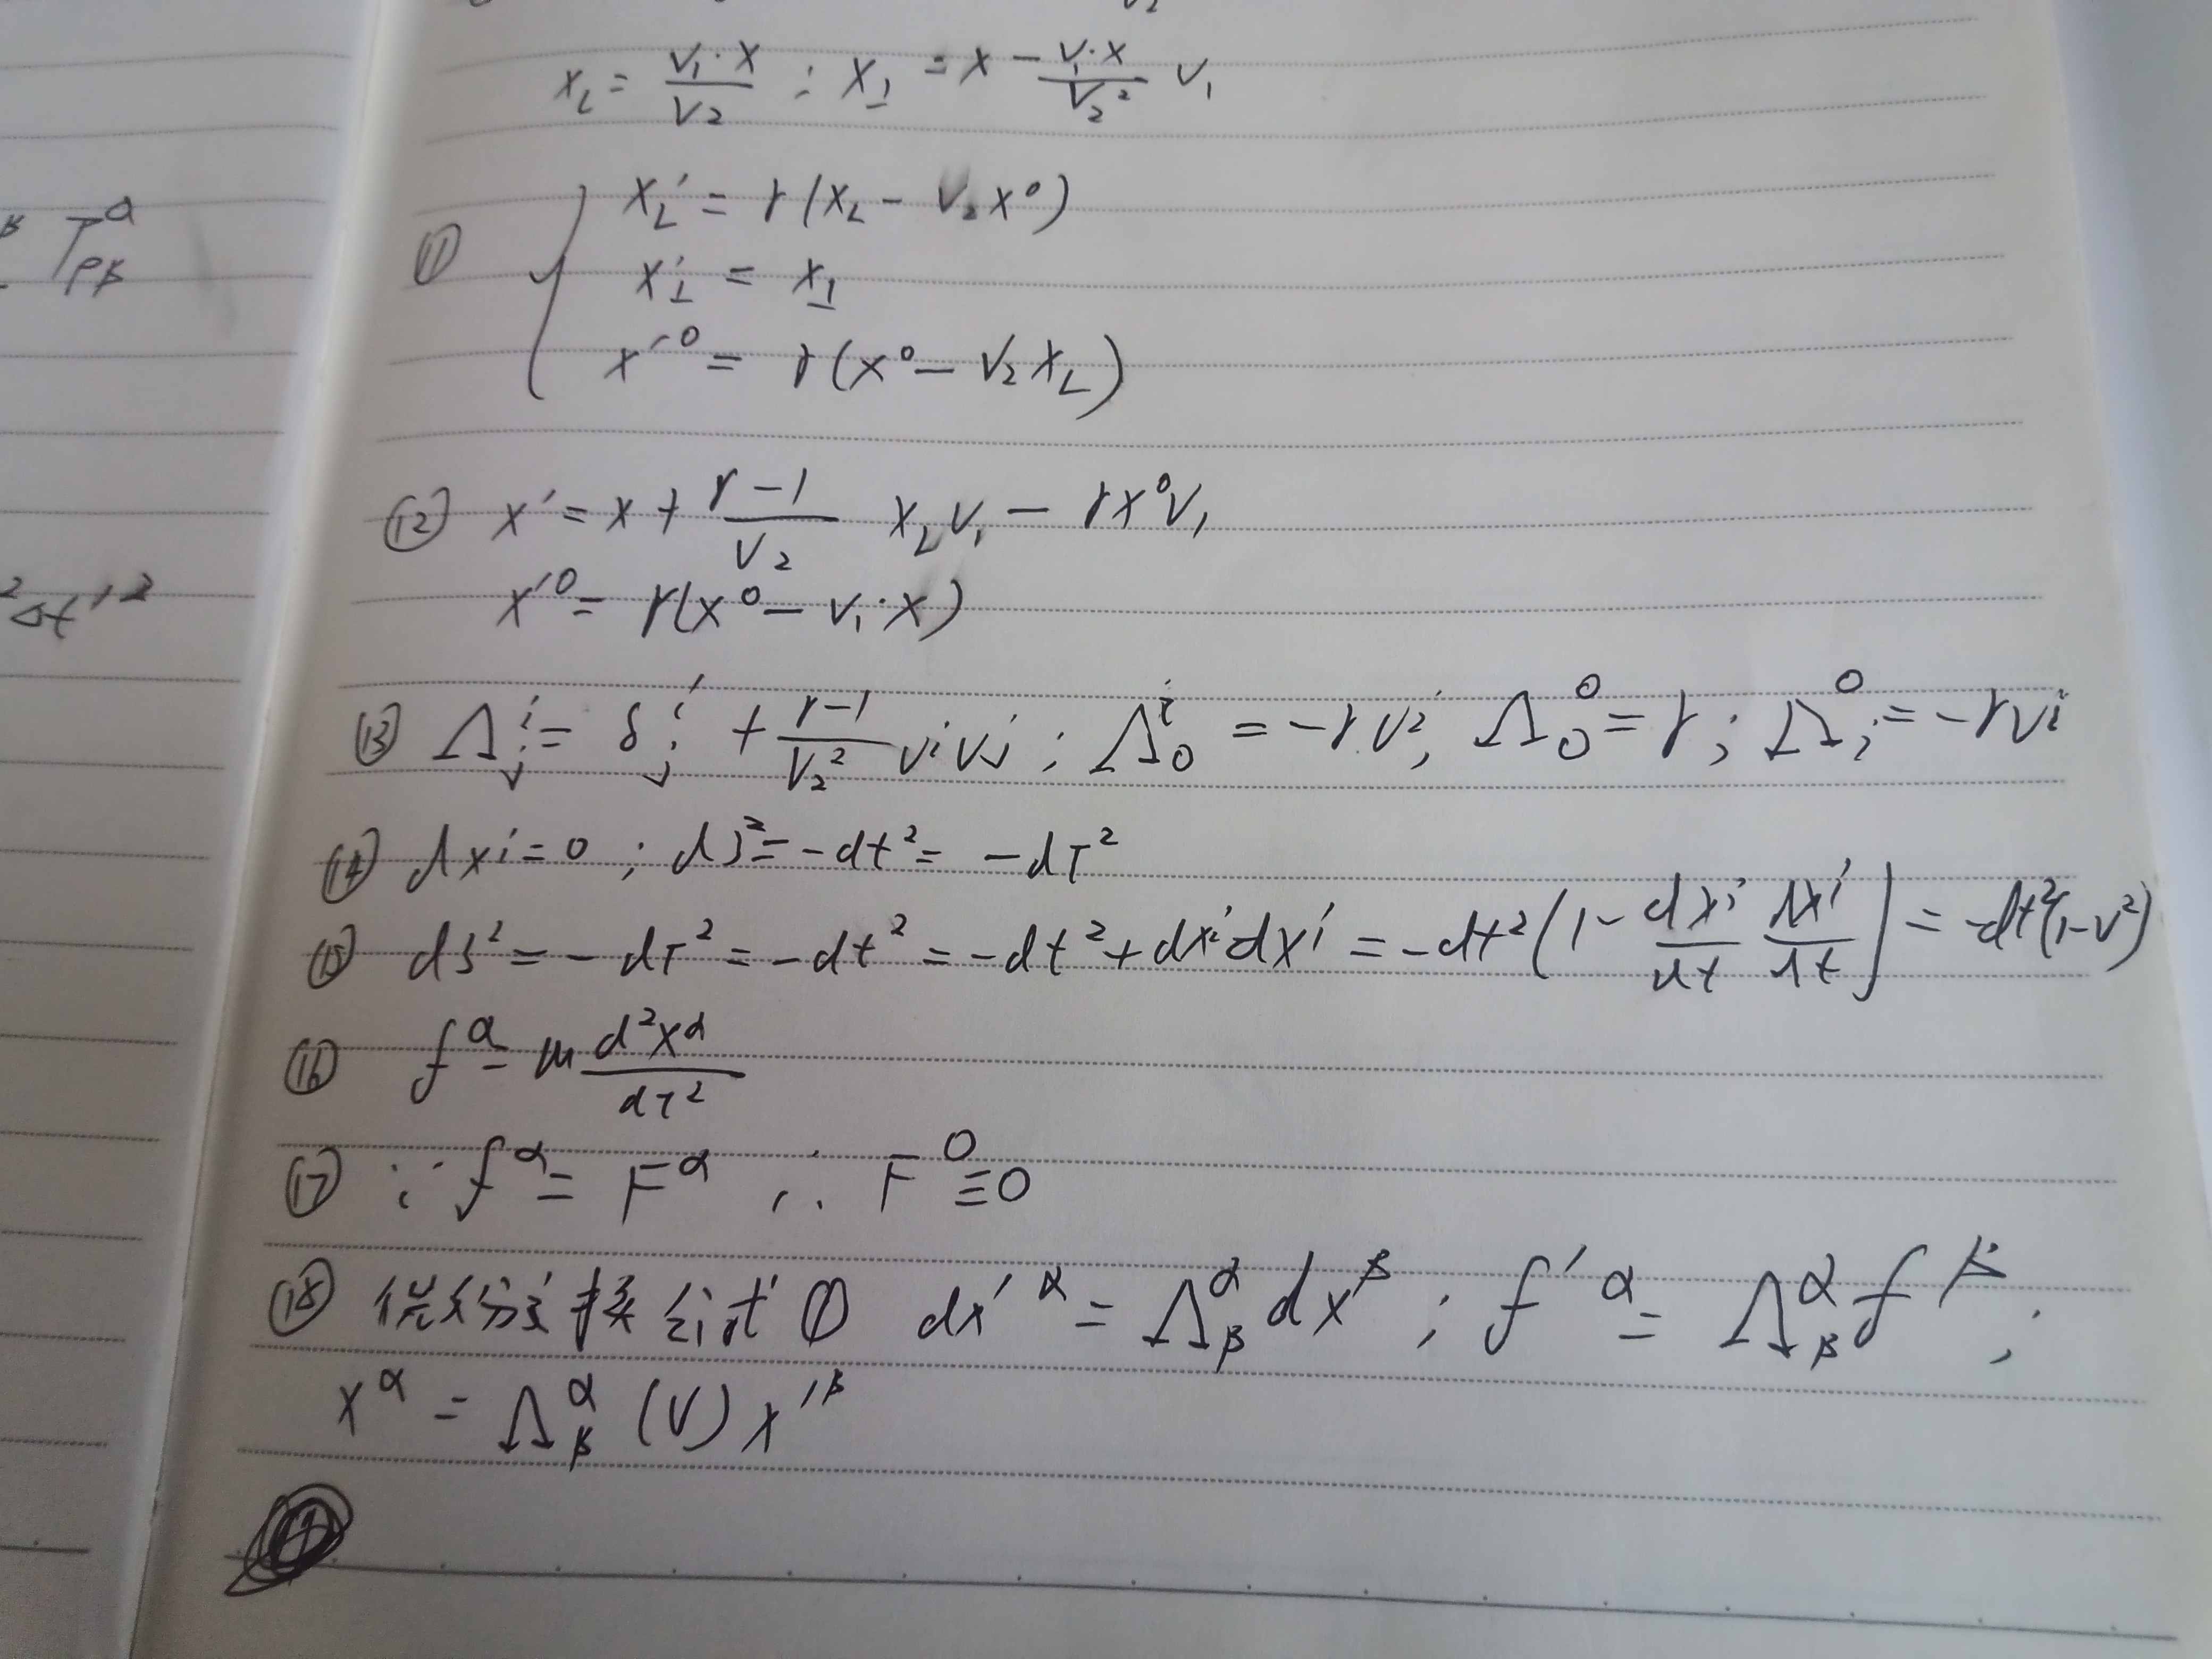 x_L = \frac{V_1 \cdot X}{V_2} ; X_⊥ = X - \frac{V_1 \cdot X}{V_2^2} V_1
⑪ { X_L' = γ(X_L - V_2 X^0)
X_⊥' = X_⊥
X'^0 = γ(X^0 - V_2 X_L)
⑫ X' = X + \frac{γ-1}{V_2} X_L V_1 - γX^0V_1
X'^0 = γ(X^0 - V_1 \cdot X)
⑬ Λ^i_j = δ^i_j + \frac{γ-1}{V_2^2} v^i v_j ; Λ^i_0 = -γ v^i, Λ^0_0 = γ ; Λ^0_i = -γ v_i
⑭ dx^i = 0 ; ds^2 = -dt^2 = -dτ^2
⑮ ds^2 = -dτ^2 = -dt^2 = -dt^2 + dx^i dx^i = -dt^2 (1 - \frac{dx^i}{dt} \frac{dx^i}{dt}) = -dt^2(1-v^2)
⑯ f^α = m \frac{d^2x^α}{dτ^2}
⑰ ∵ f^α = F^α ∴ F^0 ≡ 0
⑱ 换公式 ① dx'^α = Λ^α_β dx^β ; f'^α = Λ^α_β f^β ;
x^α = Λ^α_β (V) x'^β
T^α_{ρβ}
^2 Δt'^2